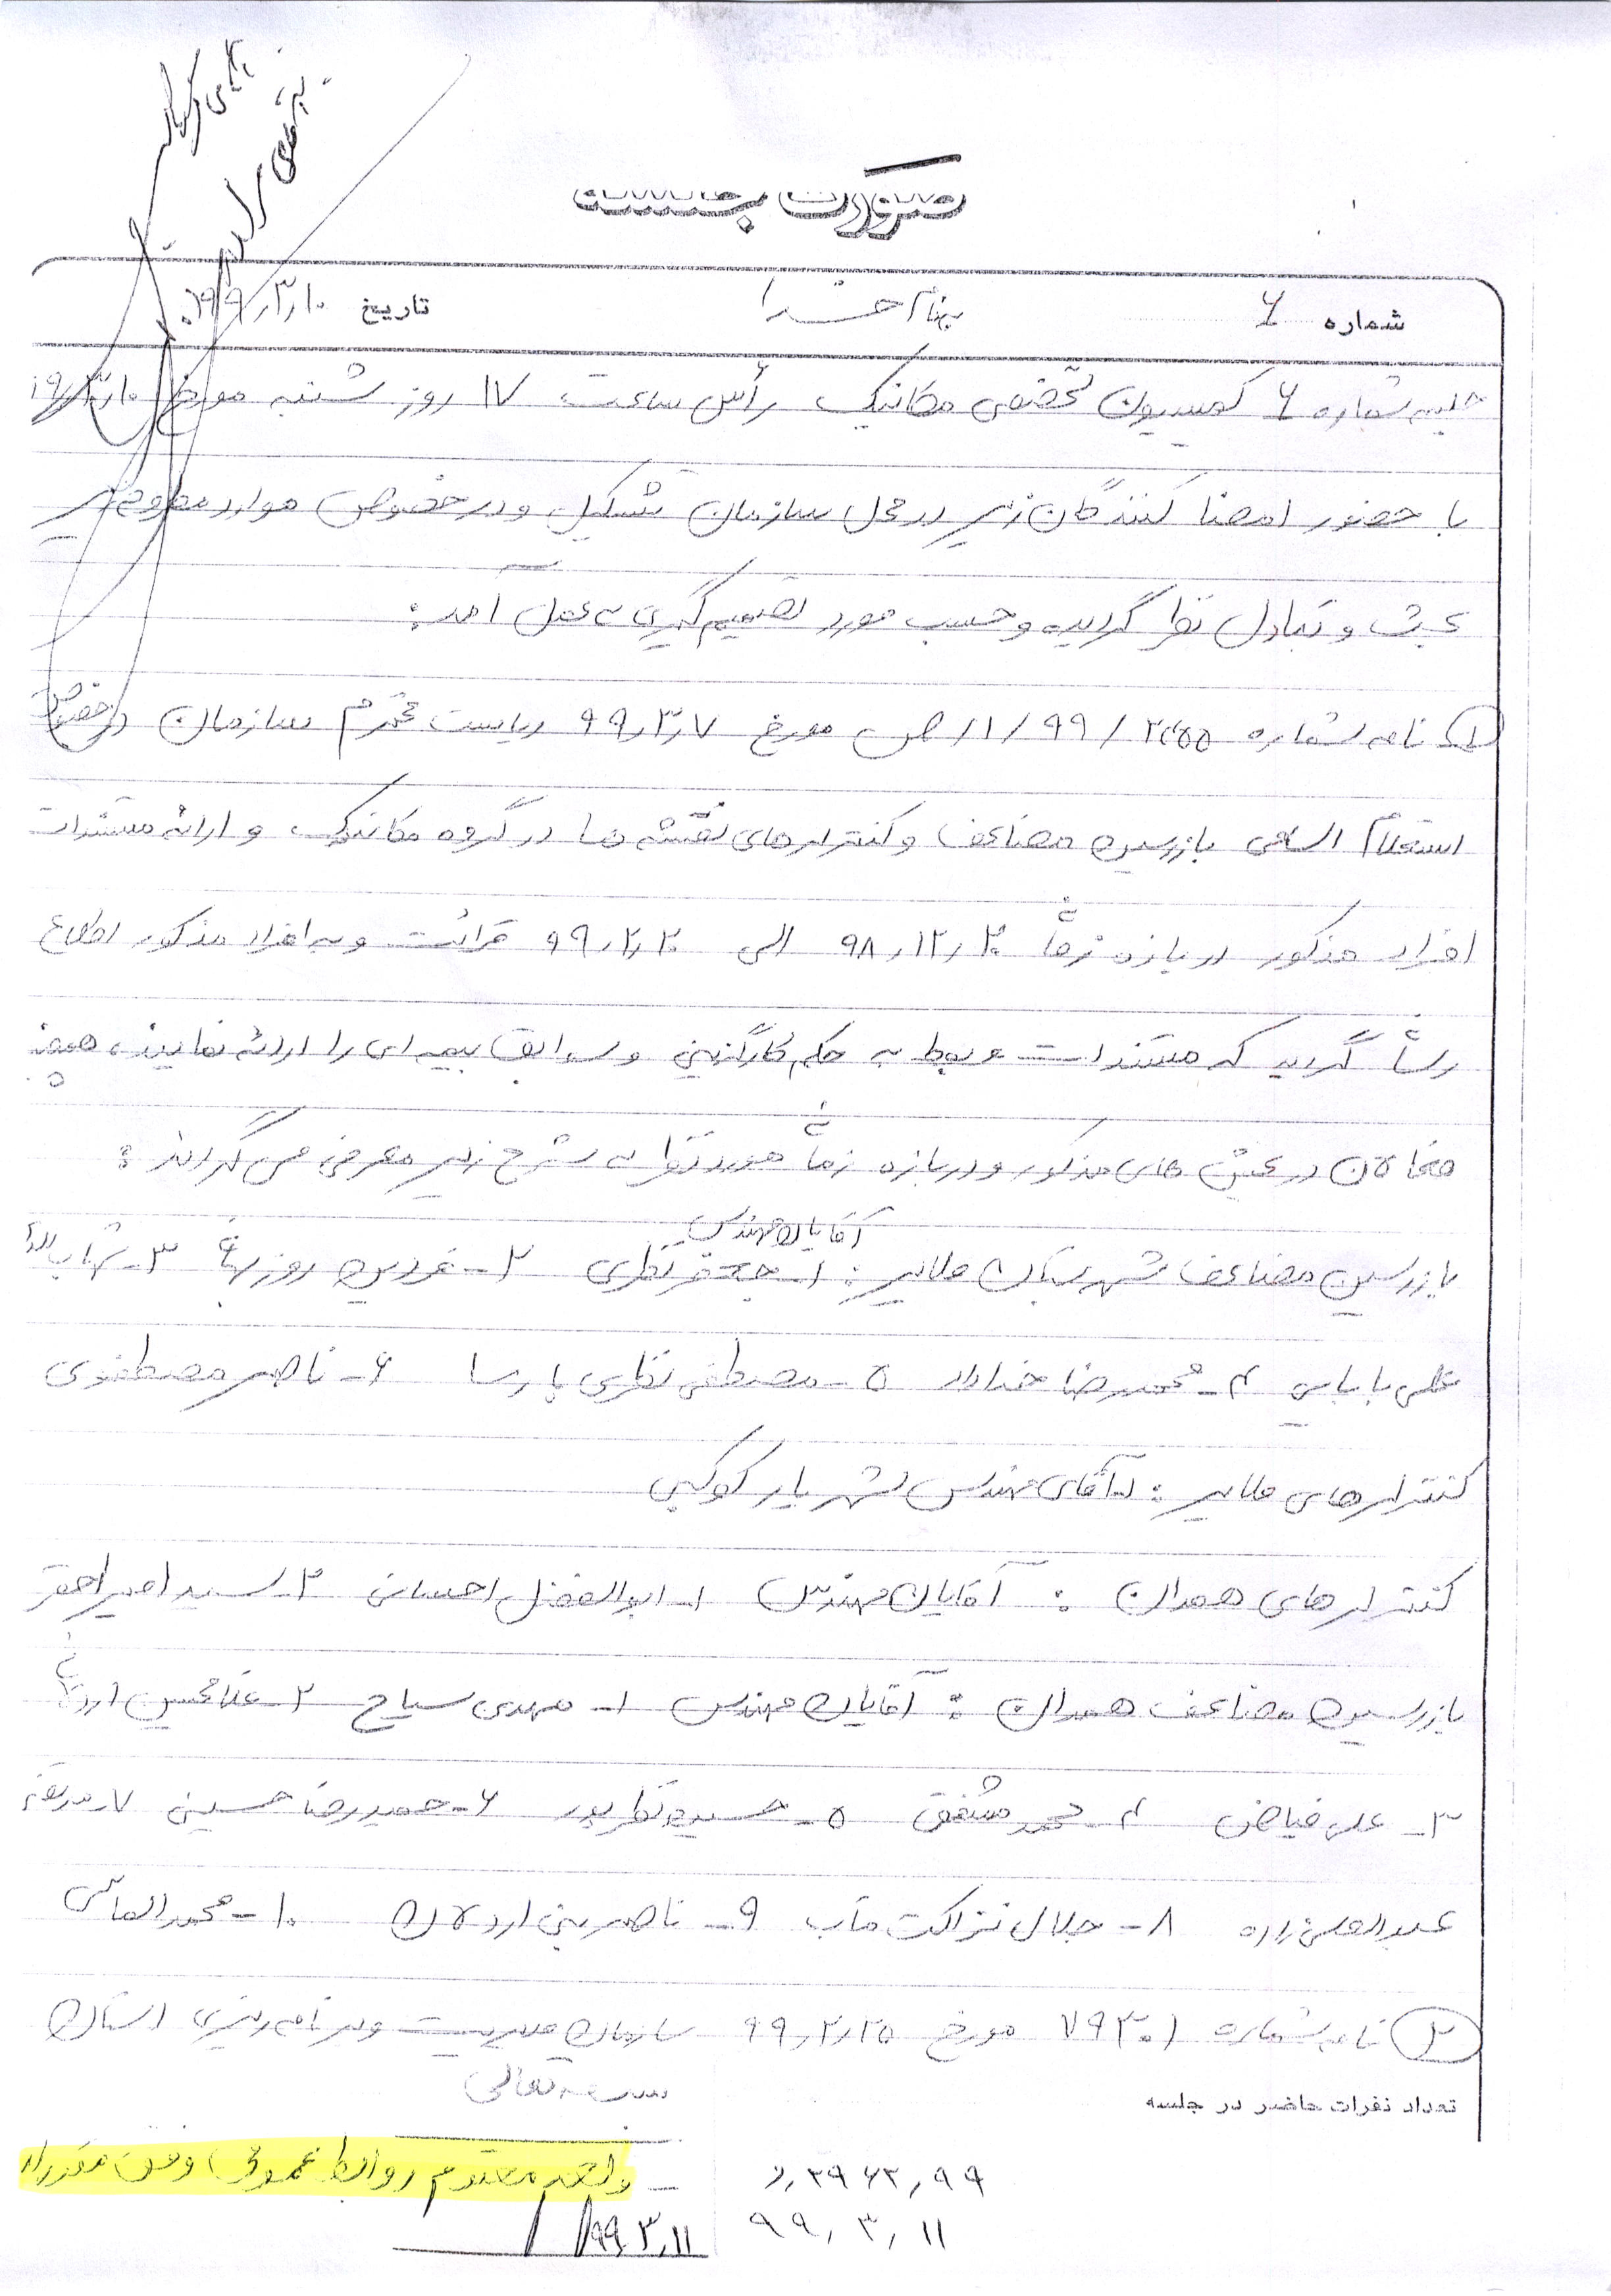 صورت جلسه
شماره ۶ بنام خدا تاریخ ۹۹/۳/۱۰
جلسه شماره ۶ کمیسیون تخصصی مکانیک رأس ساعت ۱۷ روز شنبه مورخ
با حضور امضا کنندگان زیر در محل سازمان تشکیل و در خصوص موارد مطروحه زیر
بحث و تبادل نظر گردیده و حسب مورد تصمیم گیری به عمل آمد:
۱- نامه شماره /۹۹/۱/ص مورخ ۹۹٫۳٫۷ ریاست محترم سازمان در خصوص
استعلام اسامی بازرسین مضاعف و کنترلرهای نقشه ها در گروه مکانیک و ارائه مستندات
افراد مذکور در بازه زمانی ۹۸٫۱۲٫۲۰ الی ۹۹٫۲٫۲۰ قرائت و به افراد مذکور اطلاع
رسانی گردید که مستندات مربوط به حکم کارگزینی و سوابق بیمه ای را ارائه نمایند،
در بخش های مذکور و در بازه زمانی مورد نظر به شرح زیر معرفی می گردند:
آقایان مهندس
بازرسین مضاعف شهرستان ملایر: ۱- جعفر نظری ۲- فردین روزبهانی ۳- شهاب الدین
علی بابایی ۴- محمدرضا خداداد ۵- مصطفی نظری پارسا ۶- ناصر مصطفوی
کنترلرهای ملایر: ۱- آقای مهندس شهریار کوکبی
کنترلرهای همدان: آقایان مهندس ۱- ابوالفضل احسانی ۲- سید امیر احمد
بازرسین مضاعف همدان: آقایان مهندس ۱- مهدی سیاح ۲- غلامحسین
۳- علی فیاض ۴- محمد مشفق ۵- حسین نظرپور ۶- حمیدرضا حسینی ۷-
عبدالعلی زاده ۸- جلال نزاکت مآب ۹- ناصر بنی اردلان ۱۰- محمد الماسی
۲ نامه شماره ۷۹۳۰۱ مورخ ۹۹٫۲٫۲۵ سازمان مدیریت و برنامه ریزی استان
تعداد نفرات حاضر در جلسه
بسمه تعالی
واحد محترم روابط عمومی، وفق مقررات
۹۹٫۳٫۱۱
۹۹٫۳٫۱۱